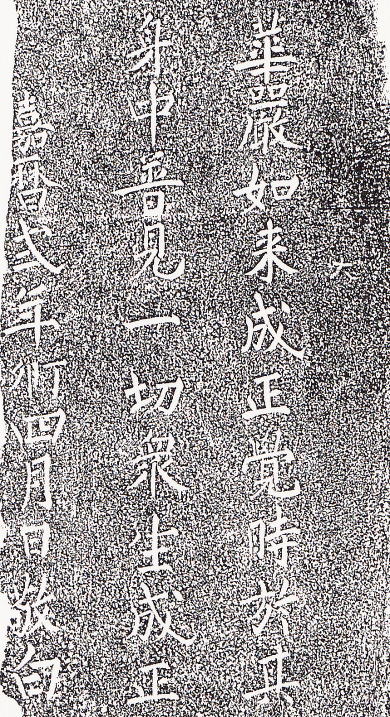 華嚴如来成正覺時於其
身中普見一切衆生成正
嘉暦弐年丁卯四月日敬白